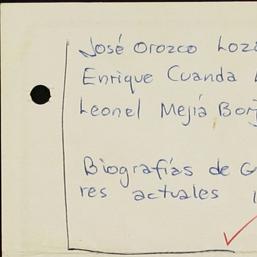 José Orozco Loz
Enrique Cuanda
Leonel Mejía Bor
Biografías de G
res actuales